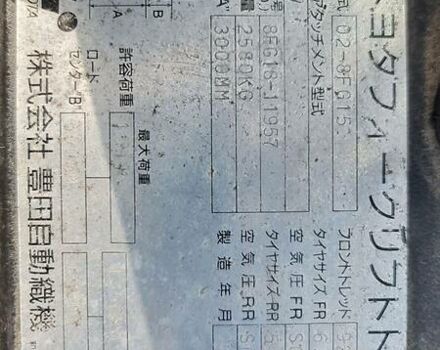 トヨタフォークリフト
式 02-8FG15
アタッチメント型式
8FG18-11957
量 2580KG
3000MM
フロントトレッド
タイヤサイズ FR
空気圧 FR
タイヤサイズ RR
空気圧 RR
製造年月
最大荷重
許容荷重
ロード
センター"B"
A
B
株式会社 豊田自動織機